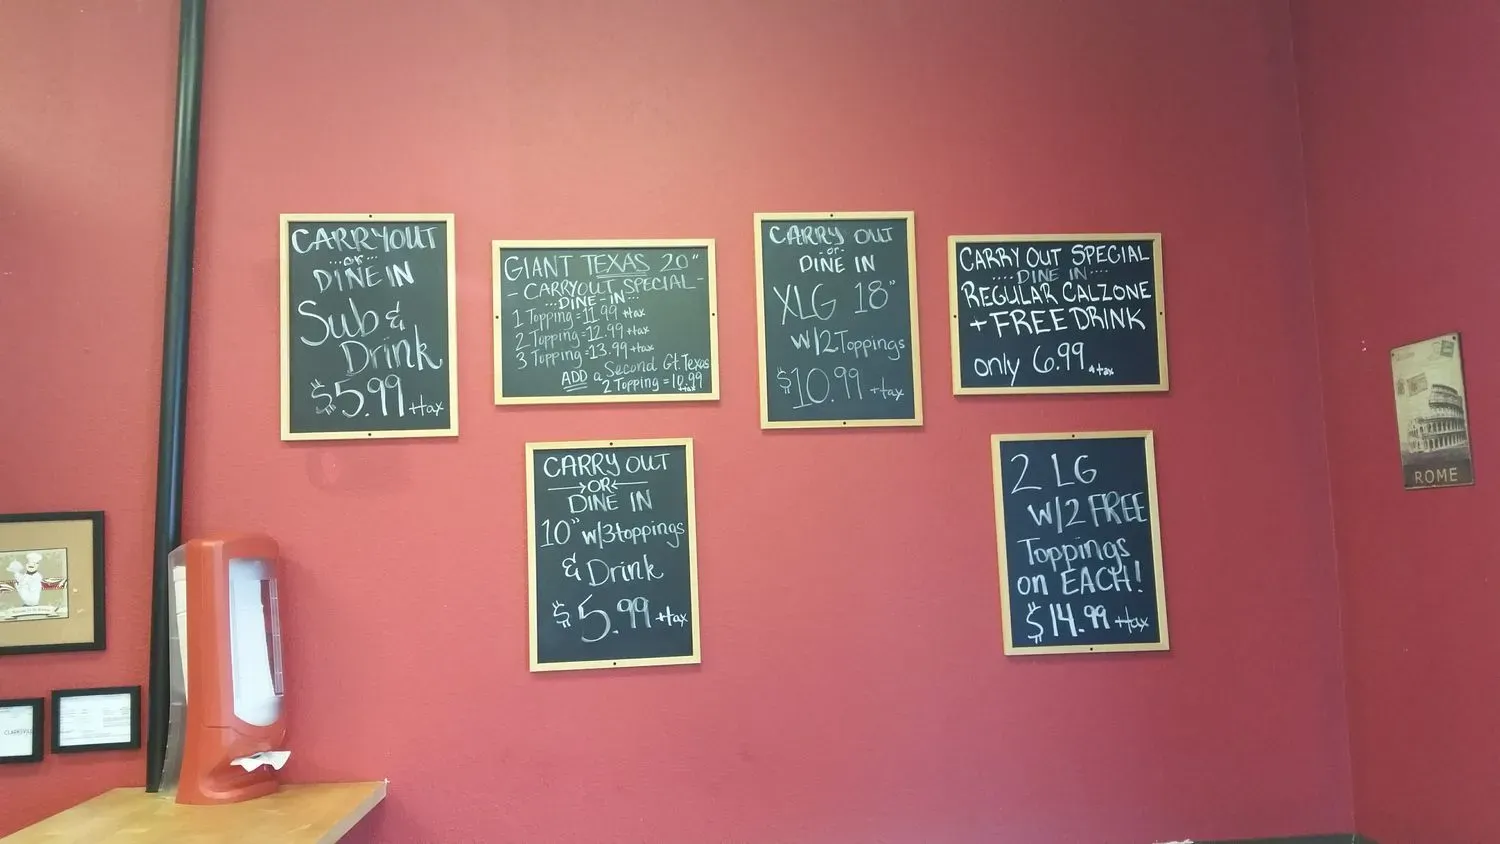 CARRYOUT
...or...
DINE IN
Sub &
Drink
$5.99 +tax
GIANT TEXAS 20"
- CARRYOUT SPECIAL -
...DINE-IN...
1 Topping = 11.99 +tax
2 Topping = 12.99 +tax
3 Topping = 13.99 +tax
ADD a Second Gt. Texas
2 Topping = 10.99
+tax
CARRY OUT
-or-
DINE IN
XLG 18"
w/2 Toppings
$10.99 +tax
CARRY OUT SPECIAL
....DINE IN....
REGULAR CALZONE
+ FREE DRINK
only 6.99 +tax
CARRY OUT
OR
DINE IN
10" w/3 toppings
& Drink
$5.99 +tax
2 LG
W/2 FREE
Toppings
on EACH!
$14.99 +tax
ROME